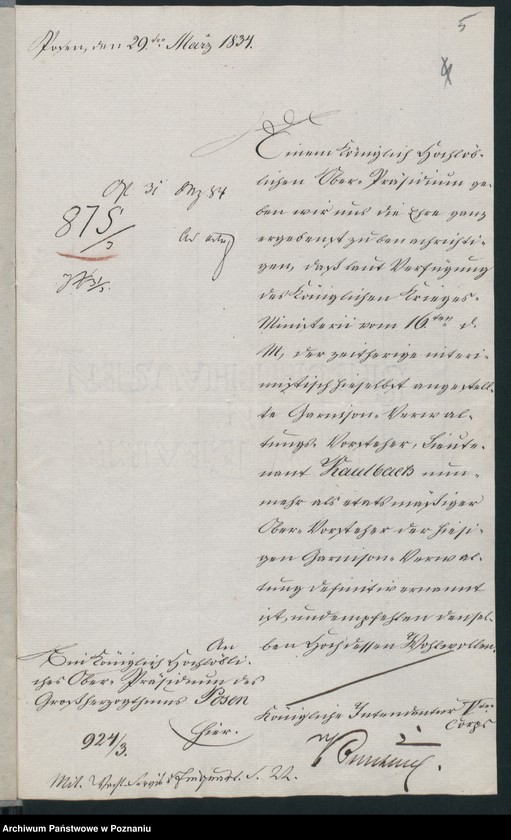 5
Posen, den 29ten März 1834.
Einem Königlich Hochlöb-
lichen Ober-Präsidium ge-
ben wir uns die Ehre ganz
ergebenst zu benachrichti-
gen, daß laut Verfügung
des Königlichen Krieges-
Ministerii vom 16ten d.
M, der zeitherige interi-
mistisch hieselbst angestell-
te Garnison-Verwal-
tungs-Vorsteher, Lieute-
nant Kaulbach nun-
mehr als etatsmäßiger
Ober-Vorsteher der hiesi-
gen Garnison-Verwal-
tung definitiv ernannt
ist, und empfehlen densel-
ben Hochdessen Wohlwollen.
Königliche Intendantur Vten
Corps
875/3
An
Ein Königlich Hochlöbli-
ches Ober-Präsidium des
Großherzogthums Posen
hier.
924/3.
Archiwum Państwowe w Poznaniu